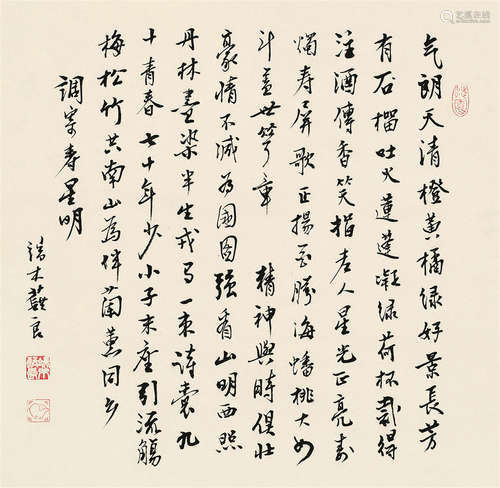 气朗天清橙黄橘绿好景長芳
有石榴吐火蓮蓬凝绿荷杯得
注酒傳香笑指老人星光正亮壽
燭寿屏歌正揚海蟠桃大如
斗蓋世章 精神與時俱壯
豪情不减為國图强看山明西照
丹林畫染半生戎马一束詩囊九
十青春七十年少小子末座引流觴
梅松竹共南山為伴蘭薰同
調寄寿星明
端木蕻良